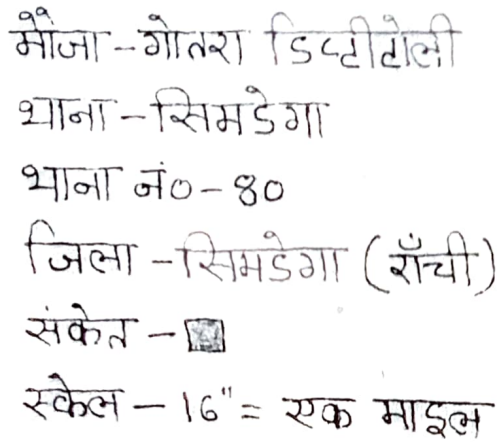 मौजा - गोतरा डिप्टीटोली
थाना - सिमडेगा
थाना नं० - 80
जिला - सिमडेगा (राँची)
संकेत -
स्केल - 16" = एक माइल